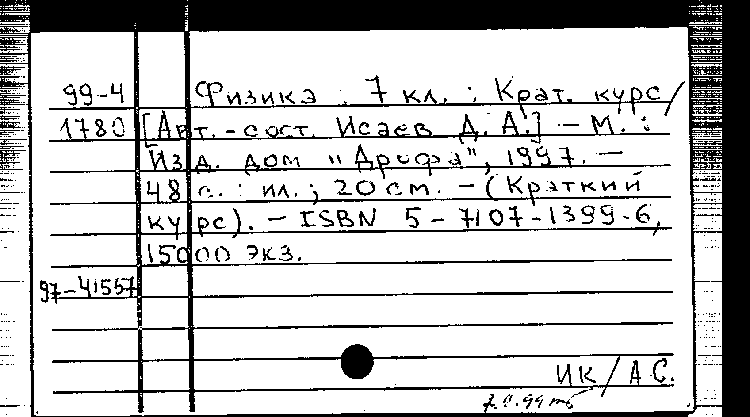 99-4 Физика : 7 кл. : Крат. курс/
1780 [Авт.-сост. Исаев Д. А.] - М. :
Изд. дом "Дрофа", 1997. -
48 с. : ил. ; 20 см. - (Краткий
курс). - ISBN 5-7107-1399-6,
15000 экз.
97-41557
ИК/АС.